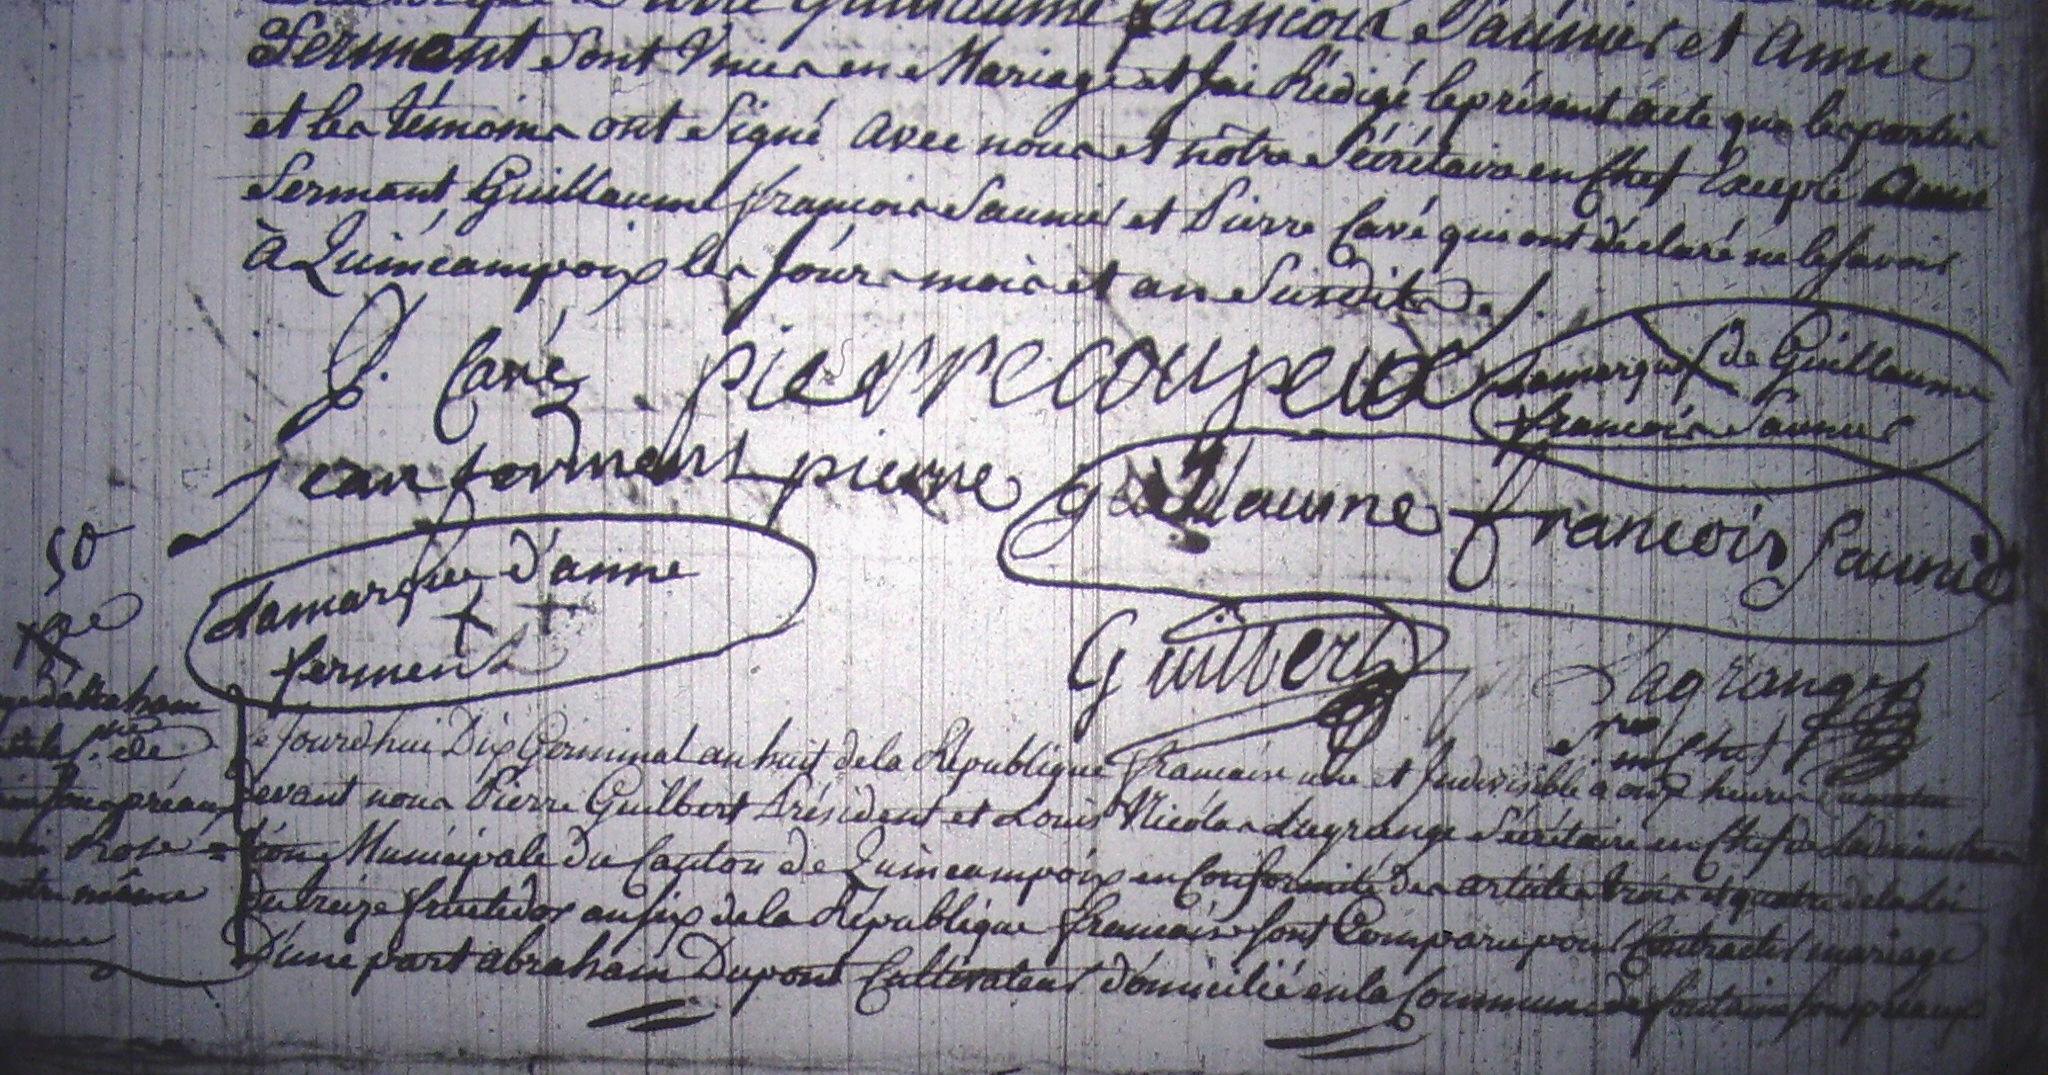 Guillaume françois Saunier et anne
Ferment Sont Unies en Mariage et jai Rédigé le présent acte que les parties
et les témoins ont Signé avec nous et nôtre Sécrétaire en Chef Excepté anne
Ferment Guillaume françois Saunier et Pierre Cavé qui ont déclaré ne le Savoir
à Quincampoix les Jour mois et an Susdits.
P. Cavé pierre coupeux
la marque de Guillaume
françois Saunier
jean ferment pierre
guillaume francois Saunié
la marque d'anne
ferment
50
Guilbert
Lagrange
en Chef
d'abraham
Dupréaux
Rose
même
Ce Jourdhui Dix Germinal an huit de la République française une et Indivisible à onze heures
devant nous Pierre Guilbert Président et Louis Nicolas Lagrange Sécrétaire en Chef de Ladministra
tion Municipale du Canton de Quincampoix en Conformité des articles trois et quatre de la loi
du treize fructidor an six de la République française Sont Comparu pour Contracter mariage
D'une part abraham Dupont Cultivateur domicilié en la Commune de fontaine Sous préaux